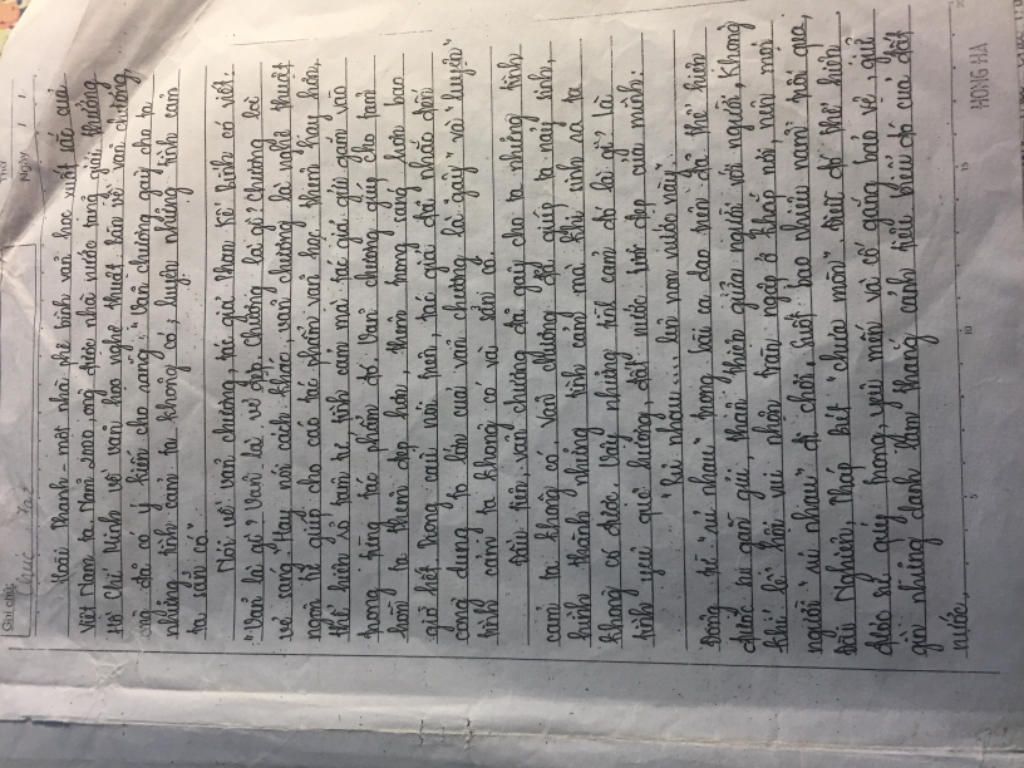 Ghi chú
Thứ
Ngày
Hoài Thanh - một nhà phê bình văn học xuất sắc của
Việt Nam ta. Năm 2000, ông được nhà nước tặng giải thưởng
Hồ Chí Minh về văn học nghệ thuật. Bàn về văn chương
ông đã có ý kiến cho rằng: "Văn chương gây cho ta
những tình cảm ta không có, luyện những tình cảm
ta sẵn có".
Nói về văn chương, tác giả Phan Kế Bính có viết:
"Văn là gì? Văn là vẻ đẹp. Chương là gì? Chương là
vẻ sáng". Hay nói cách khác, văn chương là nghệ thuật
ngôn từ giúp cho các tác phẩm văn học thêm hay hơn,
thể hiện rõ tâm tư tình cảm mà tác giả gửi gắm vào
trong từng tác phẩm đó. Văn chương giúp cho tâm
hồn ta thêm đẹp hơn, thêm trong sáng hơn bao
giờ hết. Trong câu nói trên, tác giả đã nhắc đến
công dụng to lớn của văn chương là "gây" và "luyện"
tình cảm ta không có và sẵn có.
Đầu tiên, văn chương đã gây cho ta những tình
cảm ta không có, văn chương đã giúp ta nảy sinh,
hình thành những tình cảm mà khi sinh ra ta
không có được. Vậy những tình cảm đó là gì? Là
tình yêu quê hương, đất nước tươi đẹp của mình:
"Rủ nhau.... lên non nước này."
Động từ "rủ nhau" trong bài ca dao trên đã thể hiện
được sự gần gũi, thân thiện giữa người với người, không
khí lễ hội vui nhộn tràn ngập ở khắp nơi, nên mọi
người "rủ nhau" đi chơi. Suốt bao nhiêu năm trôi qua,
Đài Nghiên, Tháp Bút "chưa mòn", như đó thể hiện
được sự quý trọng, yêu mến và cố gắng bảo vệ, giữ
gìn những danh lam thắng cảnh tiêu biểu đó của đất
nước,
HONG HA
5
10
15